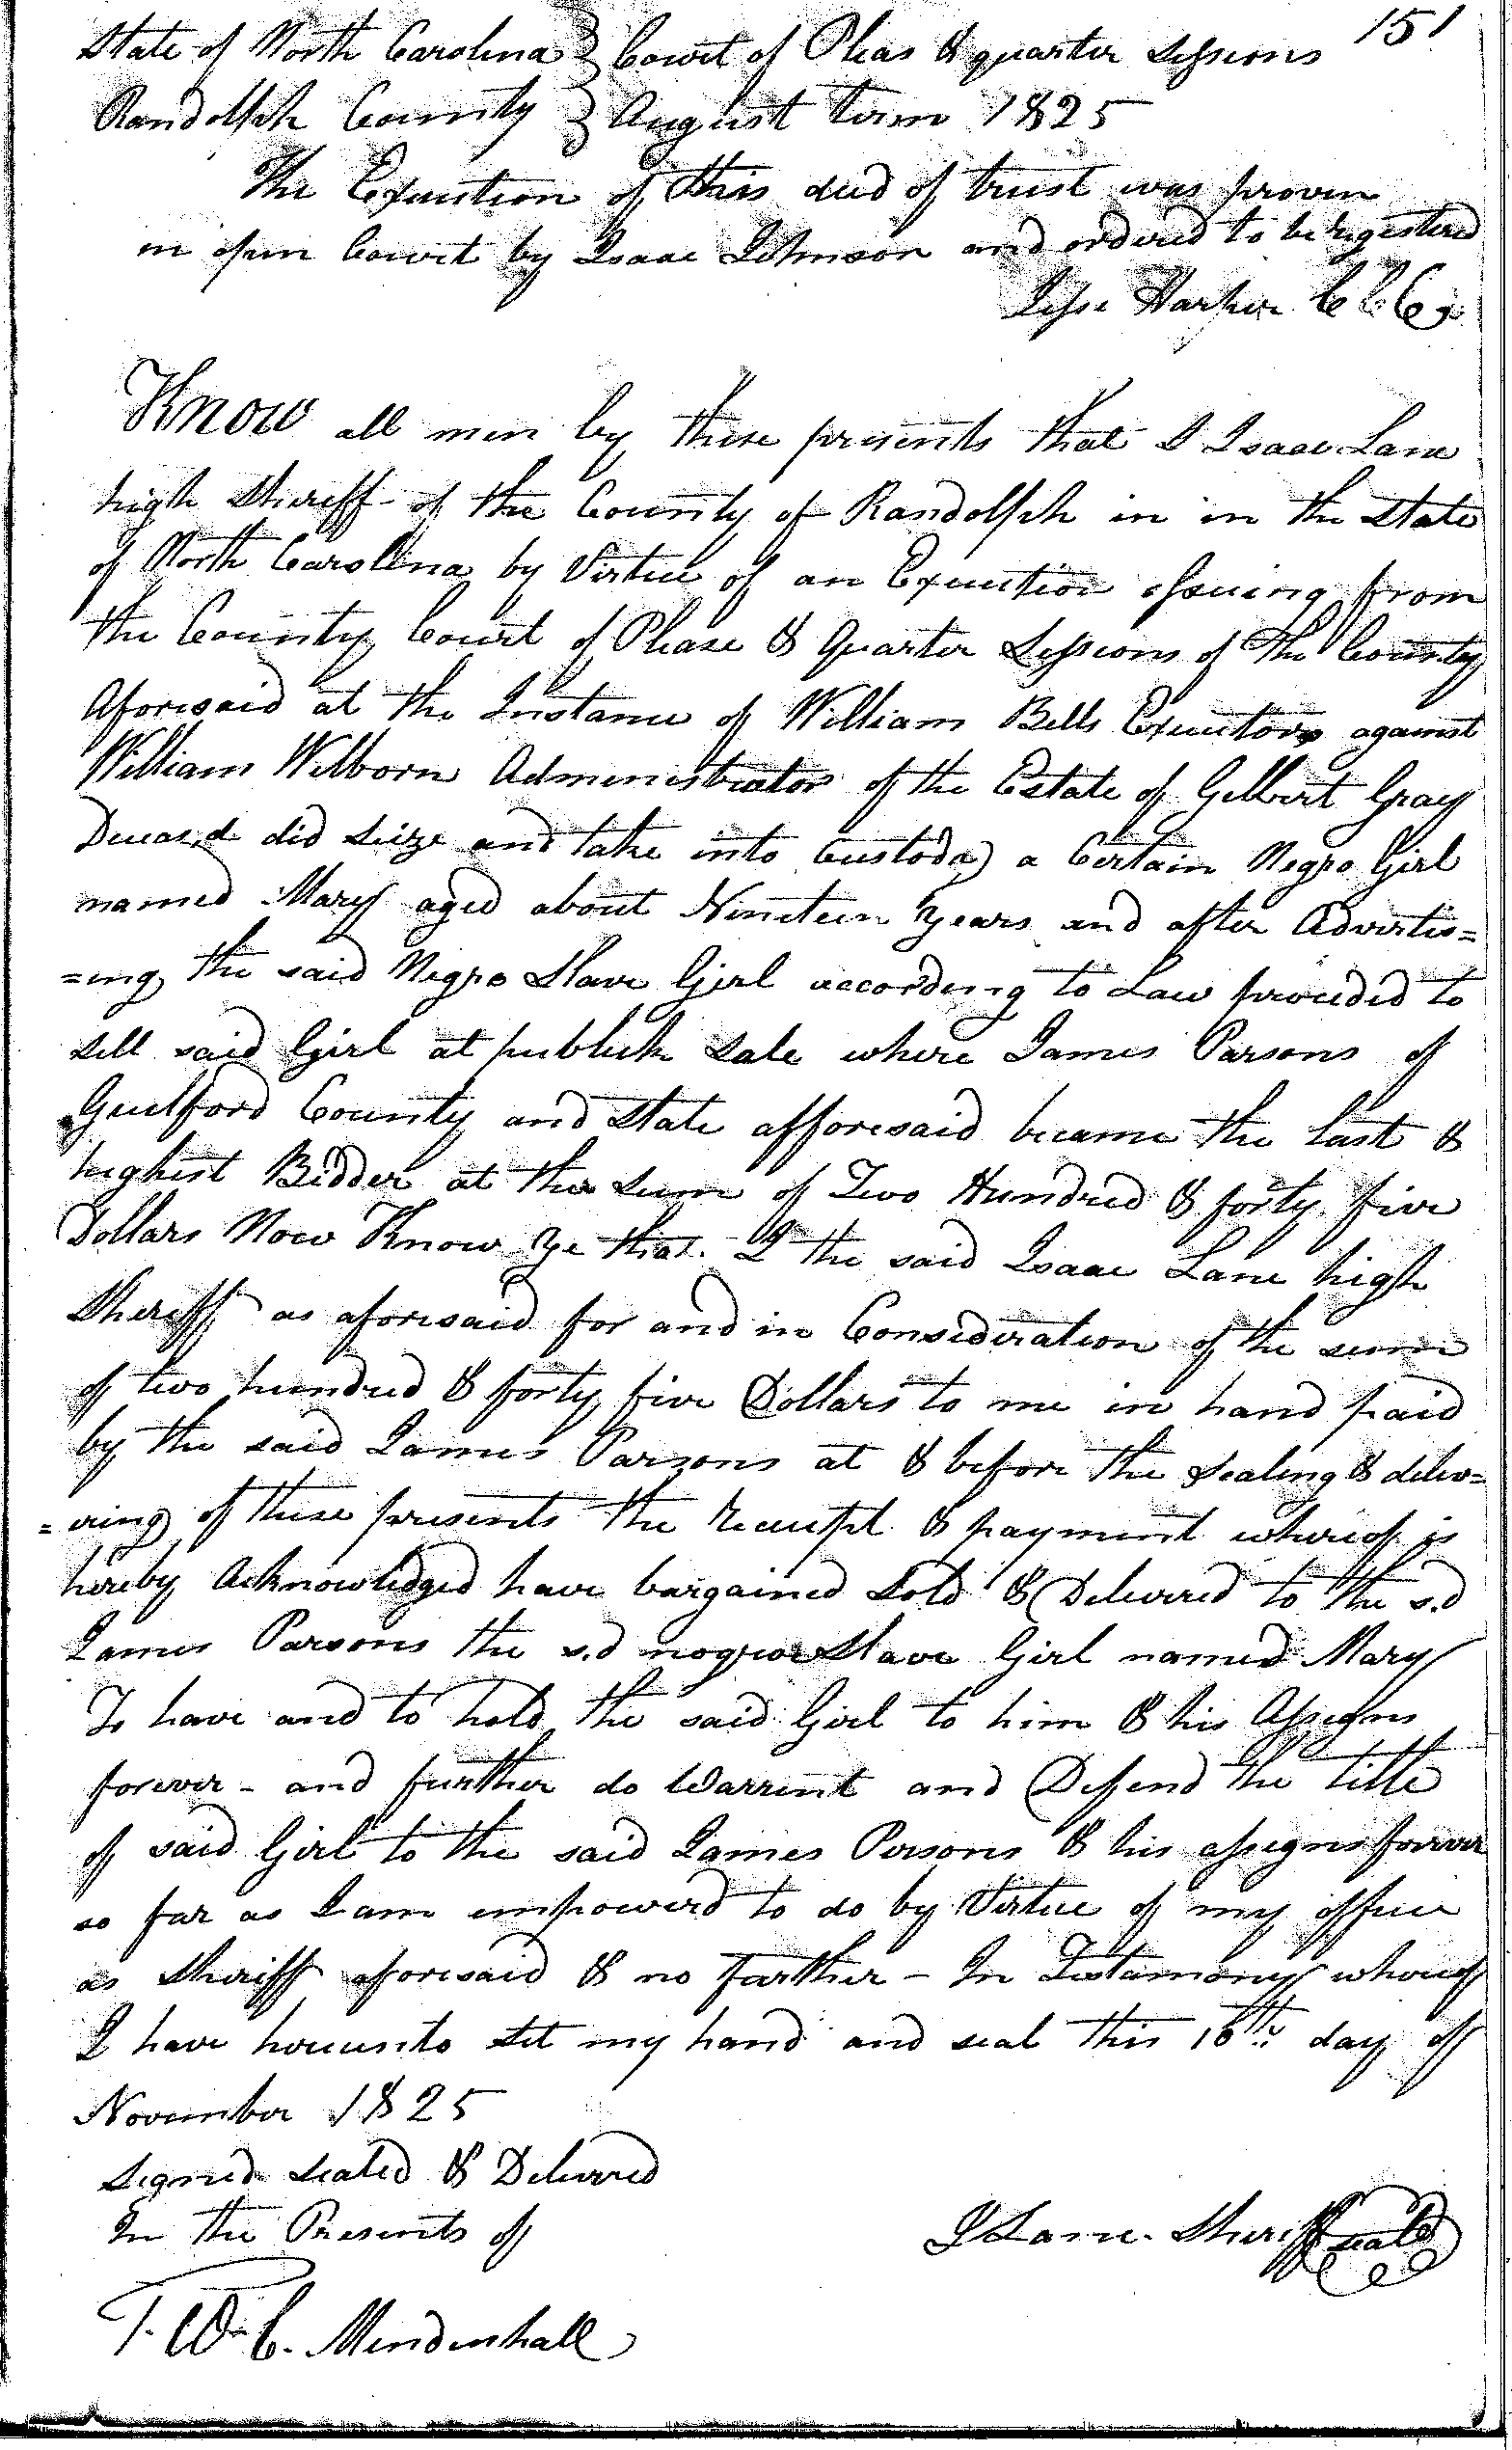 151
State of North Carolina } Court of Pleas & quarter Sessions
Randolph County } August term 1825
The Execution of this deed of trust was proven
in open Court by Isaac Johnson and ordered to be registered
Jesse Harper C C C
Know all men by these presents that I Isaac Lane
high Sheriff of the County of Randolph in in the State
of North Carolina by Virtue of an Execution issuing from
the County Court of Please & Quarter Sessions of the County
Aforesaid at the Instance of William Bells Executors against
William Wilborn Administrator of the Estate of Gilbert Gray
Deceas,d did Seize and take into Custoda a Certain Negro Girl
named Mary aged about Nineteen Years and after Advertis=
=ing the said Negro Slave Girl according to Law proceded to
sell said Girl at publick Sale where James Parsons of
Guilford County and State afforesaid became the last &
highest Bidder at the Sum of Two Hundred & forty five
Dollars Now Know Ye that I the said Isaac Lane high
Sheriff as aforesaid for and in Consideration of the sum
of two hundred & forty five Dollars to me in hand paid
by the said James Parsons at & before the Sealing & deliv=
=ering of these presents the Receipt & payment whereof is
hereby Acknowledged have bargained Sold & Delivered to the s.d
James Parsons the s.d negroe Slave Girl named Mary
To have and to hold the said Girl to him & his Assigns
forever - and further do Warrent and Defend the title
of said Girl to the said James Persons & his assigns forever
so far as I am empowerd to do by Virtue of my office
as Sheriff aforesaid & no farther - In Testamony whereof
I have hereunto Set my hand and seal this 16th day of
November 1825
Signed Sealed & Delivered
In the Presents of
I Lane. Sheriff seald
T. W. C. Mendenhall